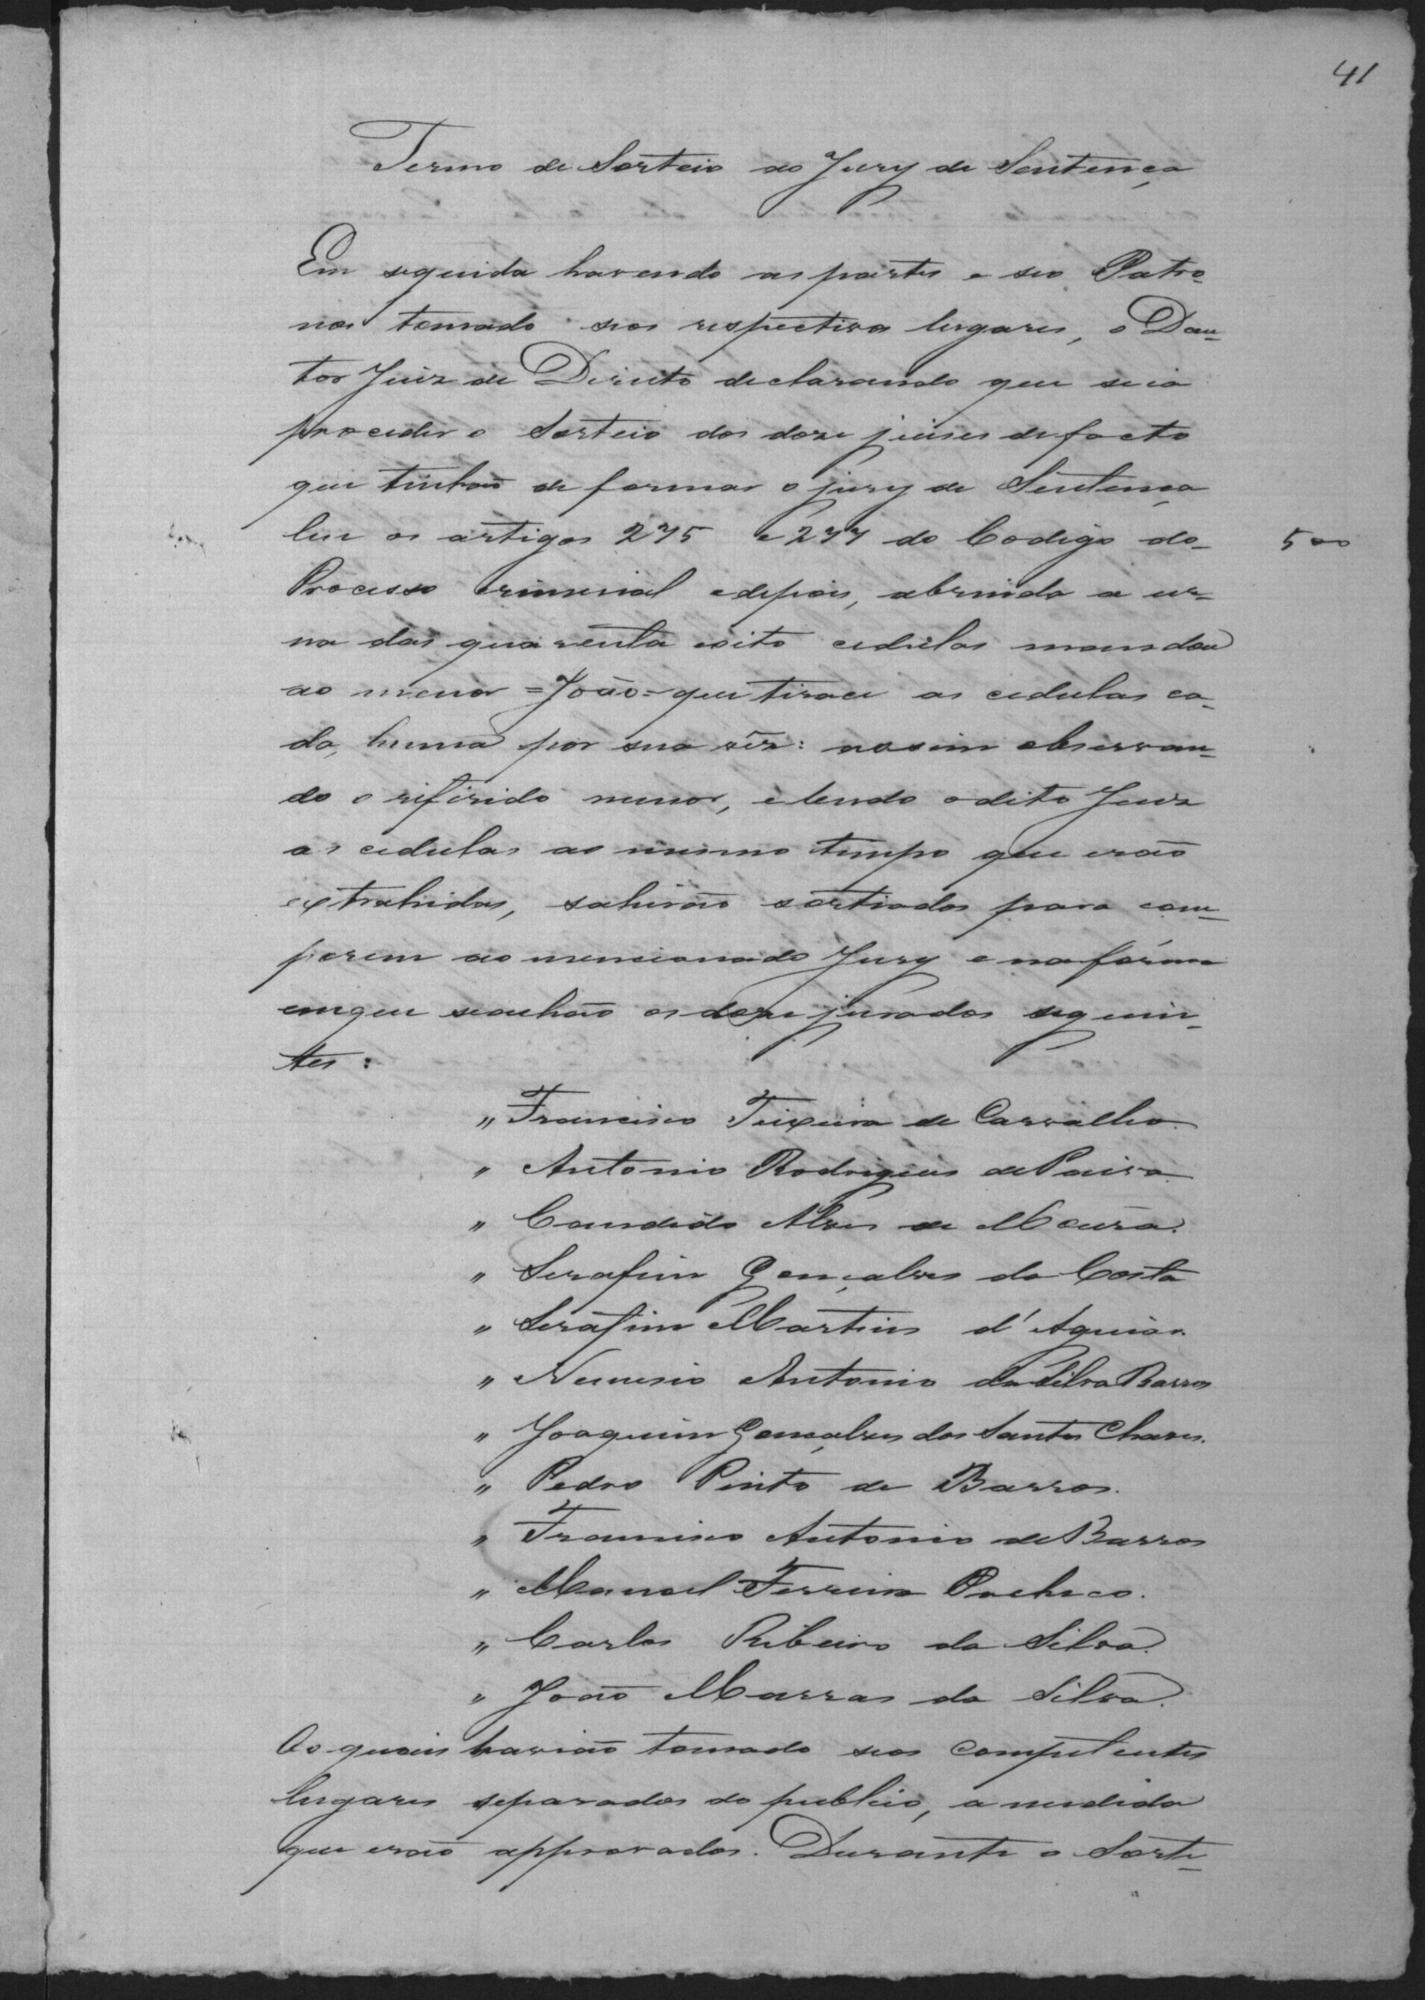 41
Termo de Sorteio do Jury de Sentença
Em seguida havendo as partes e seo Patro-
nos tomado seos respectivos lugares, o Dou-
tor Juiz de Direito declarando que se ia
proceder o Sorteio dos doze juises de facto
que tinhão de formar o jury de Sentença
leu os artigos 275 e 277 do Codigo do 500
Processo criminal e depois, abrindo a ur-
na das quarenta e oito cedulas mandou
ao menor =João= que tirace as cedulas ca-
da huma por sua vêz: assim observan-
do o rifirido menor, e lendo o dito Juiz
as cedulas ao mesmo tempo que erão
extrahidas, sahirão sortiados para com-
porem ao mencionado Jury e na fórma
em que se achão os doze jurados seguin-
tes:
" Francisco Teixeira de Carvalho.
" Antonio Rodrigues de Paiva.
" Candido Alves de Moura.
" Serafim Gonçalves da Costa
" Serafim Martins d'Aguiar.
" Nemesio Antonio da Silva Barros
" Joaquim Gonçalves dos Santos Chaves.
" Pedro Pinto de Barros.
" Francisco Antonio de Barros
" Manoel Ferreira Pacheco.
" Carlos Ribeiro da Silva.
" João Marras da Silva.
Os quais havião tomado seos competentes
lugares separados do publico, a medida
que erão approvados. Durante o Sorte-